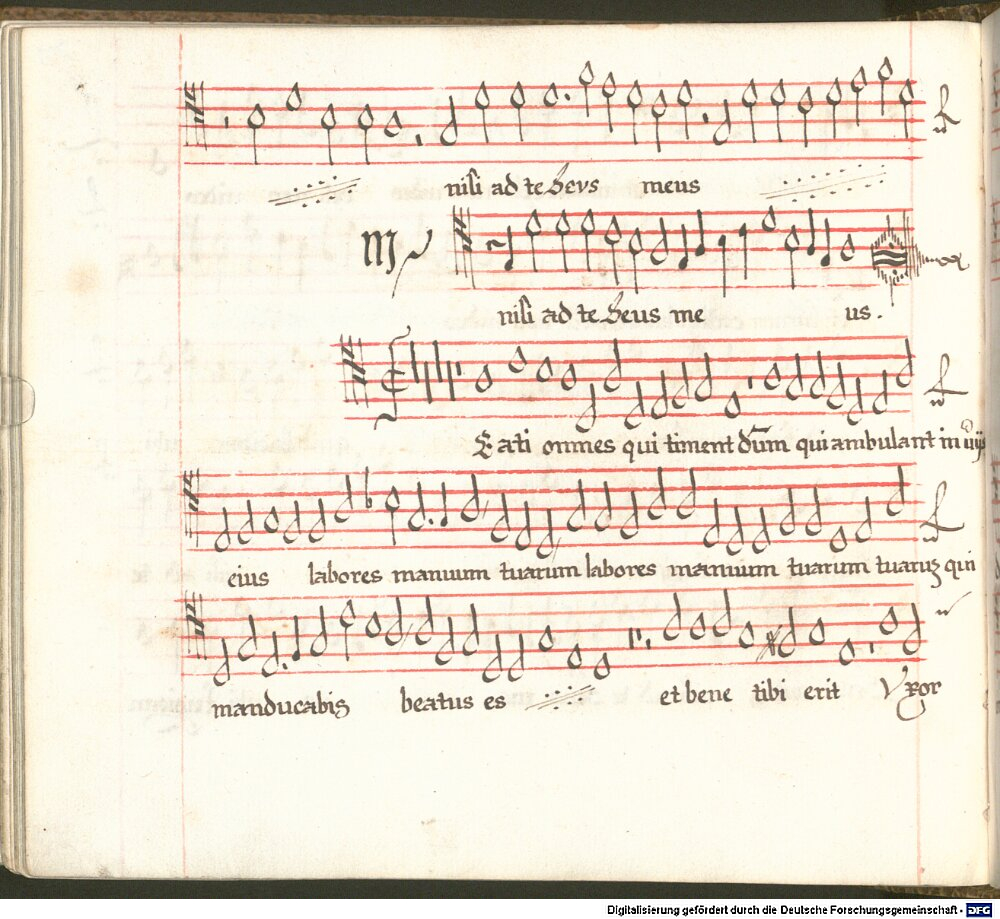 nisi ad te Deus meus
nisi ad te Deus me us.
Beati omnes qui timent dūm qui ambulant in uijs
eius labores manuum tuarum labores manuum tuarum tuaruꝫ qui
manducabis beatus es et bene tibi erit Vxor
Digitalisierung gefördert durch die Deutsche Forschungsgemeinschaft - DFG